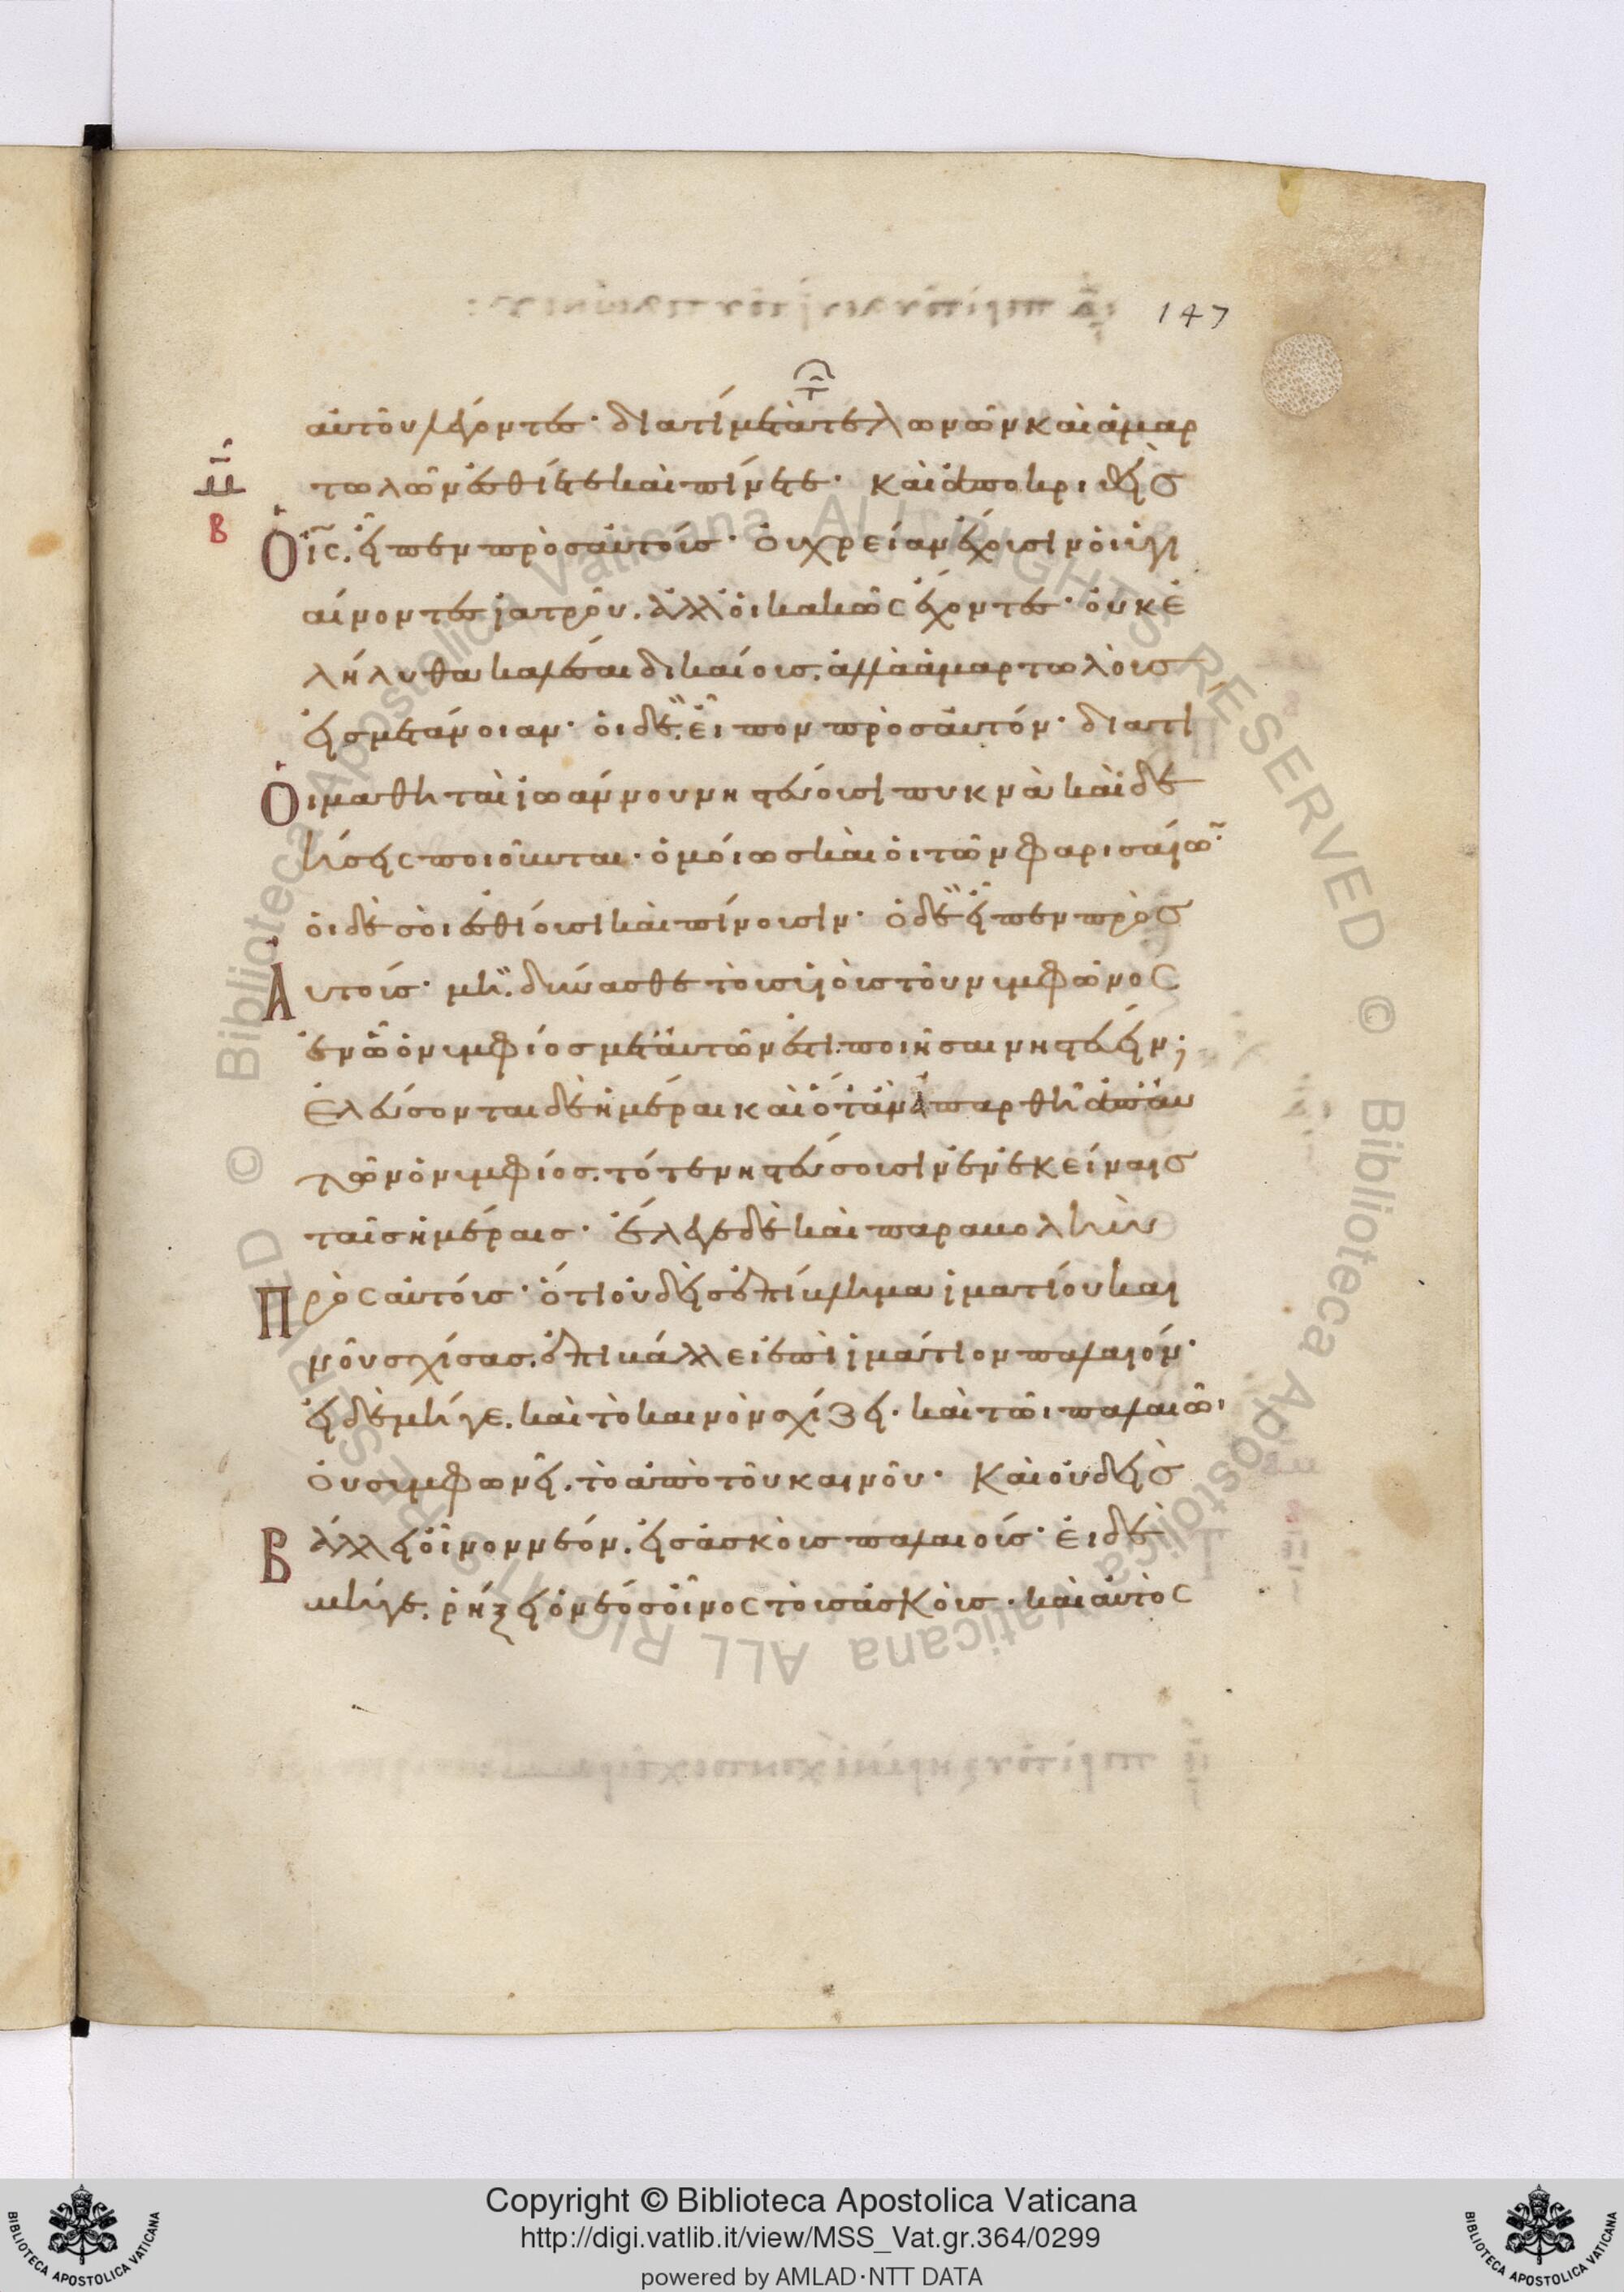 147
αὐτοῦ λέγοντες· διατί μετὰ τελωνῶν καὶ ἁμαρ
τωλῶν ἐσθίετε καὶ πίνετε· καὶ ἀποκριθεὶς
ὁ ι̅ς̅. εἶπεν πρὸς αὐτούς· οὐ χρείαν ἔχουσιν οἱ ὑγι
αίνοντες ἰατροῦ. ἀλλ οἱ κακῶς ἔχοντες· οὐκ ἐ
λήλυθα καλέσαι δικαίους. ἀλλὰ ἁμαρτωλοὺς
εἰς μετάνοιαν· οἱ δὲ. εἶπον πρὸς αὐτόν· διατί
οἱ μαθηταὶ ἰωάννου νηστεύουσι πυκνὰ καὶ δε
ήσεις ποιοῦνται· ὁμοίως καὶ οἱ τῶν φαρισαίων
οἱ δὲ σοὶ ἐσθίουσι καὶ πίνουσιν· ὁ δὲ εἶπεν πρὸς
αὐτούς· μὴ. δύνασθε τοὺς υἱοὺς τοῦ νυμφῶνος
ἐν ᾧ ὁ νυμφίος μετ αὐτῶν ἐστι. ποιῆσαι νηστεύειν;
ἐλεύσονται δὲ ἡμέραι καὶ ὅταν ἀπαρθῆ ἀπ αυ
τῶν ὁ νυμφίος. τότε νηστεύσουσιν ἐν ἐκείναις
ταῖς ἡμέραις· ἔλεγε δὲ καὶ παραβολὴν
πρὸς αὐτούς· ὅτι οὐδεὶς ἐπίβλημα ἱματίου και
νοῦ σχίσας. ἐπιβάλλει ἐπὶ ἱμάτιον παλαιόν·
εἰ δὲ μήγε. καὶ τὸ καινὸν σχίζει. καὶ τῶι παλαιῶι
οὐ συμφωνεῖ. τὸ ἀπὸ τοῦ καινοῦ· καὶ οὐδεὶς
βάλλει οἶνον νέον. εἰς ἀσκοὺς παλαιούς· εἰ δὲ
μήγε. ῥήξει ὁ νέος οἶνος τοὺς ἀσκούς. καὶ αὐτὸς
Copyright © Biblioteca Apostolica Vaticana
http://digi.vatlib.it/view/MSS_Vat.gr.364/0299
powered by AMLAD·NTT DATA
BIBLIOTECA APOSTOLICA VATICANA
BIBLIOTECA APOSTOLICA VATICANA